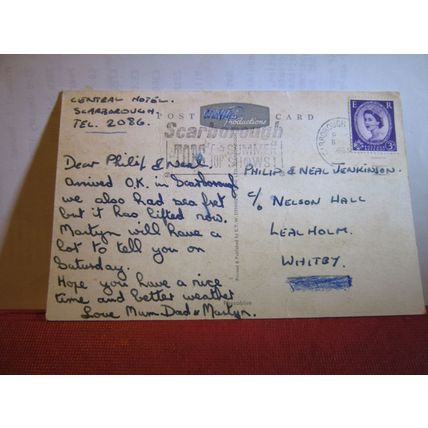 CENTRAL HOTEL.
SCARBOROUGH.
TEL. 2086.
POST CARD
Productions
Scarborough
TOPS FOR SUMMER
SHOWS!
SCARBOROUGH
E R
3D
Dear Philip & Neal.
arrived O.K. in Scarborough
we also had sea fret
but it has lifted now.
Martyn will have a
lot to tell you on
Saturday.
Hope you have a nice
time and better weather
Love Mum Dad & Martyn.
Printed & Published by E.T.W.
PHILIP & NEAL JENKINSON.
C/o NELSON HALL
LEALHOLM.
WHITBY.